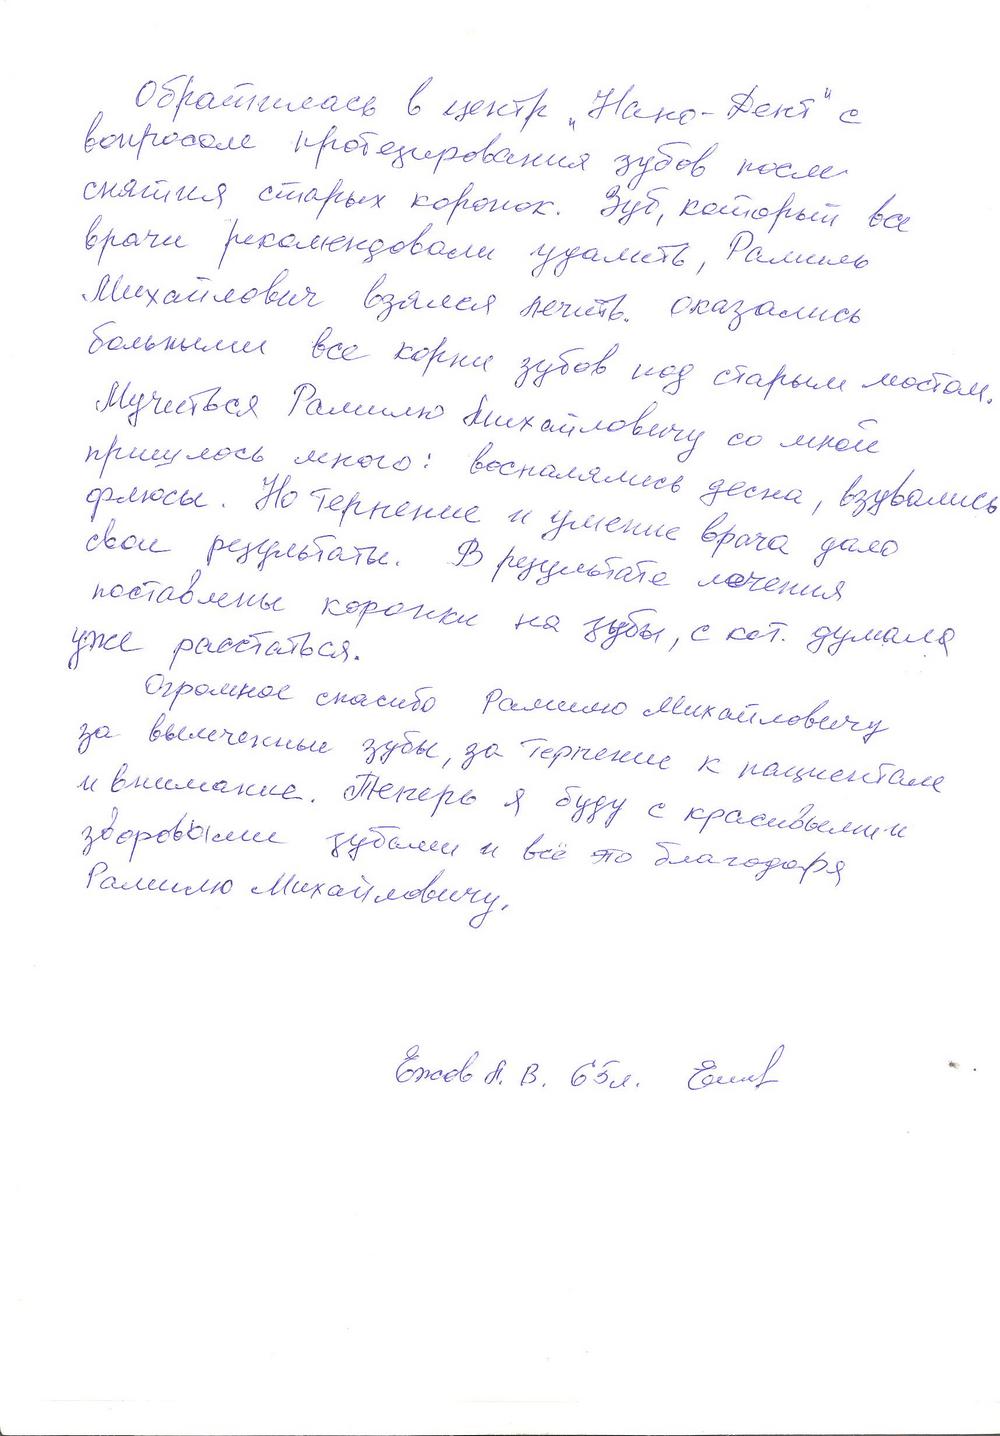 Обратилась в центр „Нано-Дент" с
вопросом протезирования зубов после
снятия старых коронок. Зуб, который все
врачи рекомендовали удалить, Рамиль
Михайлович взялся лечить. Оказались
больными все корни зубов под старым мостом.
Мучиться Рамилю Михайловичу со мной
пришлось много: воспалялись десна, взувались
флюсы. Но терпение и умение врача дало
свои результаты. В результате лечения
поставлены коронки на зубы, с кот. думала
уже расстаться.
Огромное спасибо Рамилю Михайловичу
за вылеченные зубы, за терпение к пациентам
и внимание. Теперь я буду с красивыми и
здоровыми зубами и всё это благодаря
Рамилю Михайловичу.
Ежов А. В. 65 л.